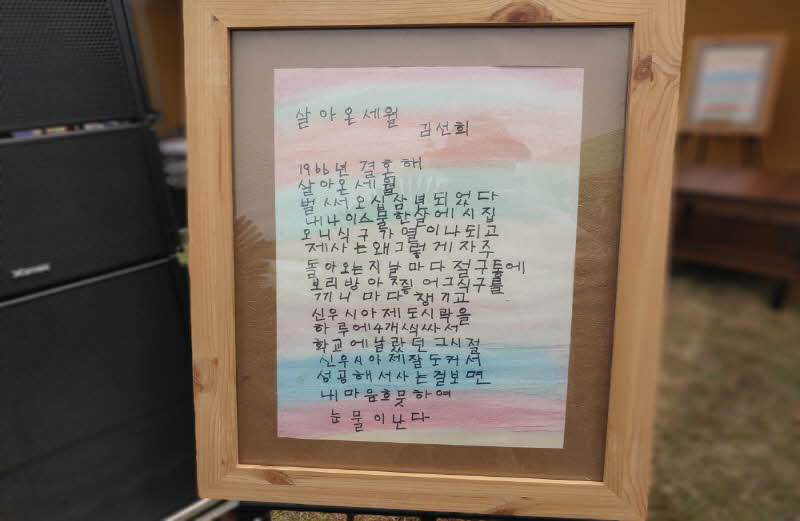 살아온세월
김선희
1966년 결혼해
살아온세월
벌써오십삼년되었다
내나이스물한살에시집
오니식구가열이나되고
제사는왜그렇게자주
돌아오는지날마다절구통에
보리방아찧어그식구들
끼니마다챙기고
신우시아제도시락을
하루에4개식싸서
학교에날랐던그시절
신우시아제잘도커서
성공해서사는걸보면
내마음흐뭇하여
눈물이난다